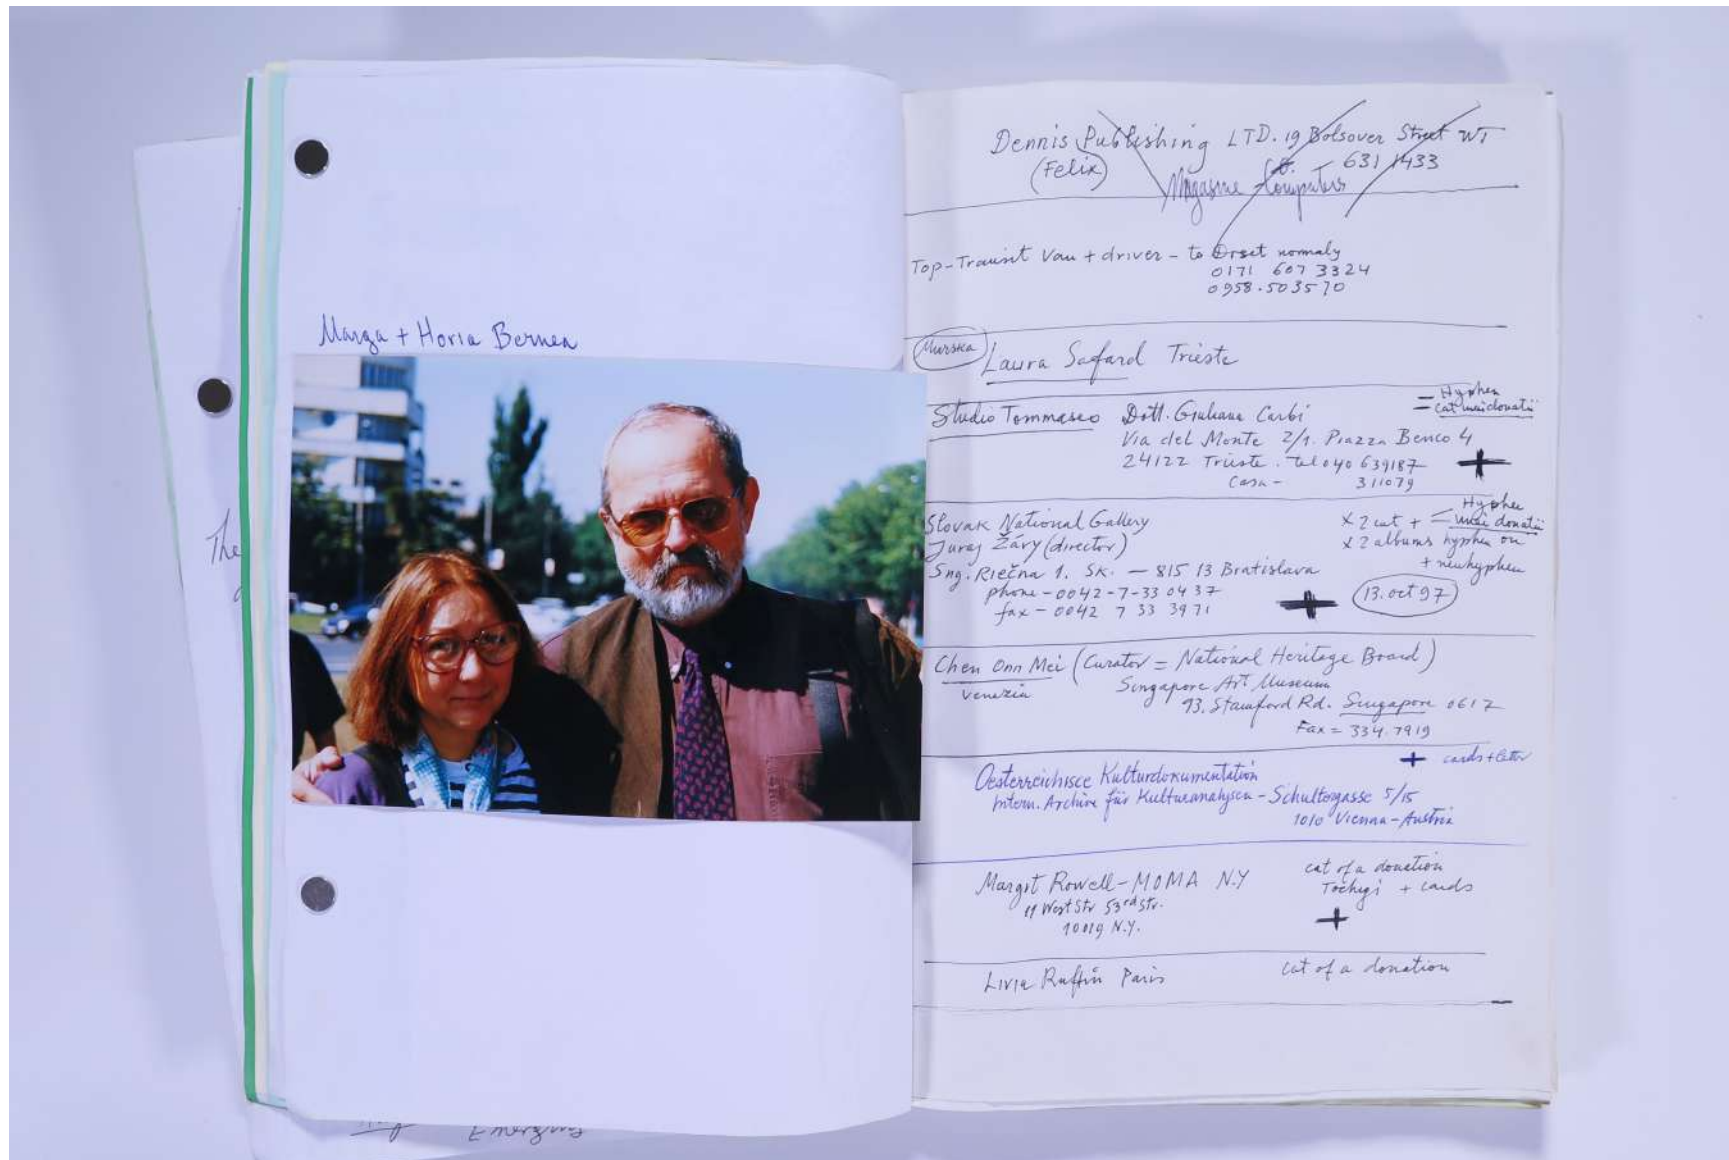 Marga + Horia Bernea
The
Emerging
Dennis Publishing LTD. 19 Bolsover Street W1
(Felix) 631 1433
Magasine Computers
Top-Transit Van + driver - to Orset normaly
0171 607 3324
0958.503570
Murska
Laura Safard Trieste
= Hyphen
Studio Tommaseo Dott. Giuliana Carbi = cat unei donatii
Via del Monte 2/1. Piazza Benco 4
24122 Trieste. tel 040 639187 +
Casa - 311079
Slovak National Gallery
Hyphen
Juraj Žáry (director) x 2 cat + = unei donatii
x 2 albums hyphen on
Sng. Riečna 1. SK. — 815 13 Bratislava + neuhyphen
phone - 0042-7-33 04 37 + 13.oct 97
fax - 0042 7 33 3971
Chen Onn Mei (Curator = National Heritage Board)
Venezia Singapore Art Museum
93. Stamford Rd. Singapore 0617
Fax = 334.7919
+ cards + letter
Oesterreichisce Kulturdokumentation
Intern. Archive für Kulturanalysen - Schultergasse 5/15
1010 Vienna - Austria
Margit Rowell - MOMA N.Y cat of a donation
11 West Str 53rd Str. Tochigi + cards
10019 N.Y. +
Livia Ruffin Paris cat of a donation